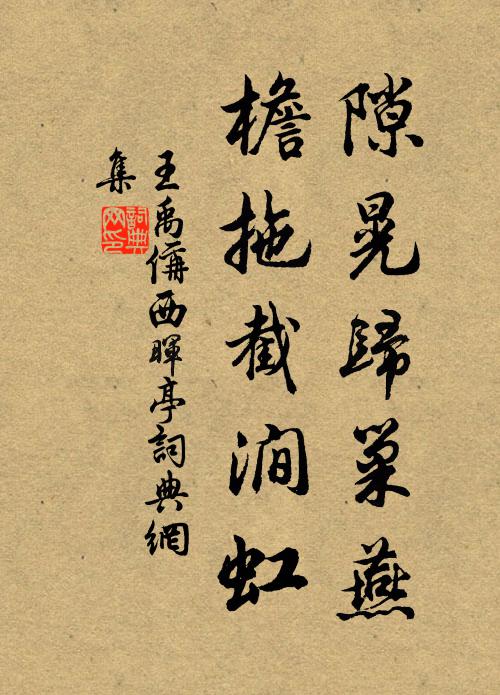 隙晃歸巢燕
檐拖截澗虹
王禹偁西暉亭詞典網
集
詞典网印